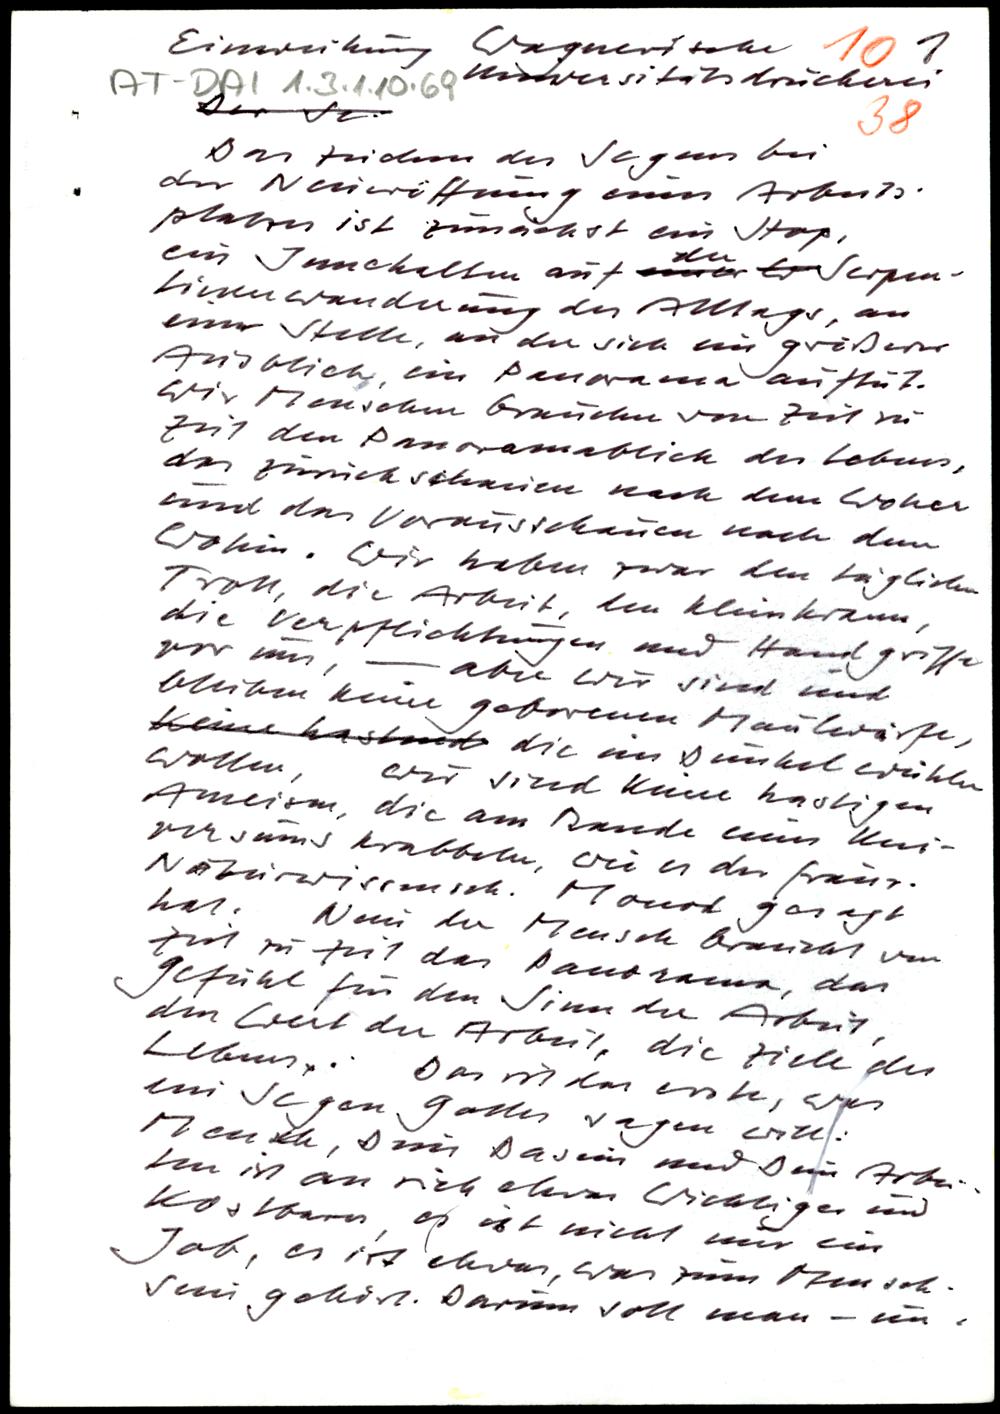 Einweihung Wagnerische 10 1
AT-DAI 1.3.1.10.69 Universitätsdruckerei
Der Se. 38
Das Zeichen des Segens bei
der Neueröffnung eines Arbeits-
platzes ist zunächst ein Stop,
ein Innehalten auf einer der Serpen-
tinenwanderung des Alltags, an
einer Stelle, an der sich ein größerer
Ausblick, ein Panorama auftut.
Wir Menschen brauchen von Zeit zu
Zeit den Panoramablick des Lebens,
das Zurückschauen nach dem Woher
und das Vorausschauen nach dem
Wohin. Wir haben zwar den täglichen
Trott, die Arbeit, den Kleinkram,
die Verpflichtungen und Handgriffe
vor uns, — aber wir sind und
bleiben keine geborenen Maulwürfe,
keine hastend die im Dunkel wühlen
wollen, wir sind keine hastigen
Ameisen, die am Rande eines Uni-
versums krabbeln, wie es der franz.
Naturwissensch. Monod gesagt
hat. Nein der Mensch braucht von
Zeit zu Zeit das Panorama, das
Gefühl für den Sinn der Arbeit,
den Wert der Arbeit, die Ziele des
Lebens. Das ist das erste, was
ein Segen Gottes sagen will:
Mensch, Dein Dasein und Dein Arbei-
ten ist an sich etwas Wichtiges und
Kostbares, es ist nicht nur ein
Job, es ist etwas, was zum Mensch-
sein gehört. Darum soll man – im